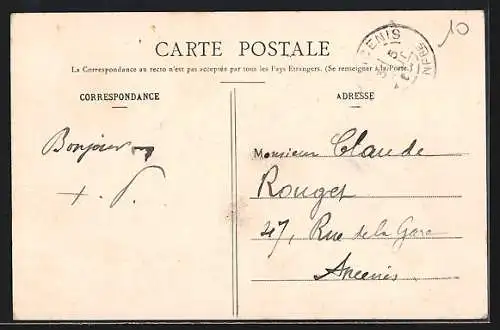 10
CARTE POSTALE
La Correspondance au recto n'est pas acceptée par tous les Pays Etrangers. (Se renseigner à la Poste.)
CORRESPONDANCE
Bonjour
ADRESSE
Monsieur Claude
Rouget
27, Rue de la Gare
Ancenis